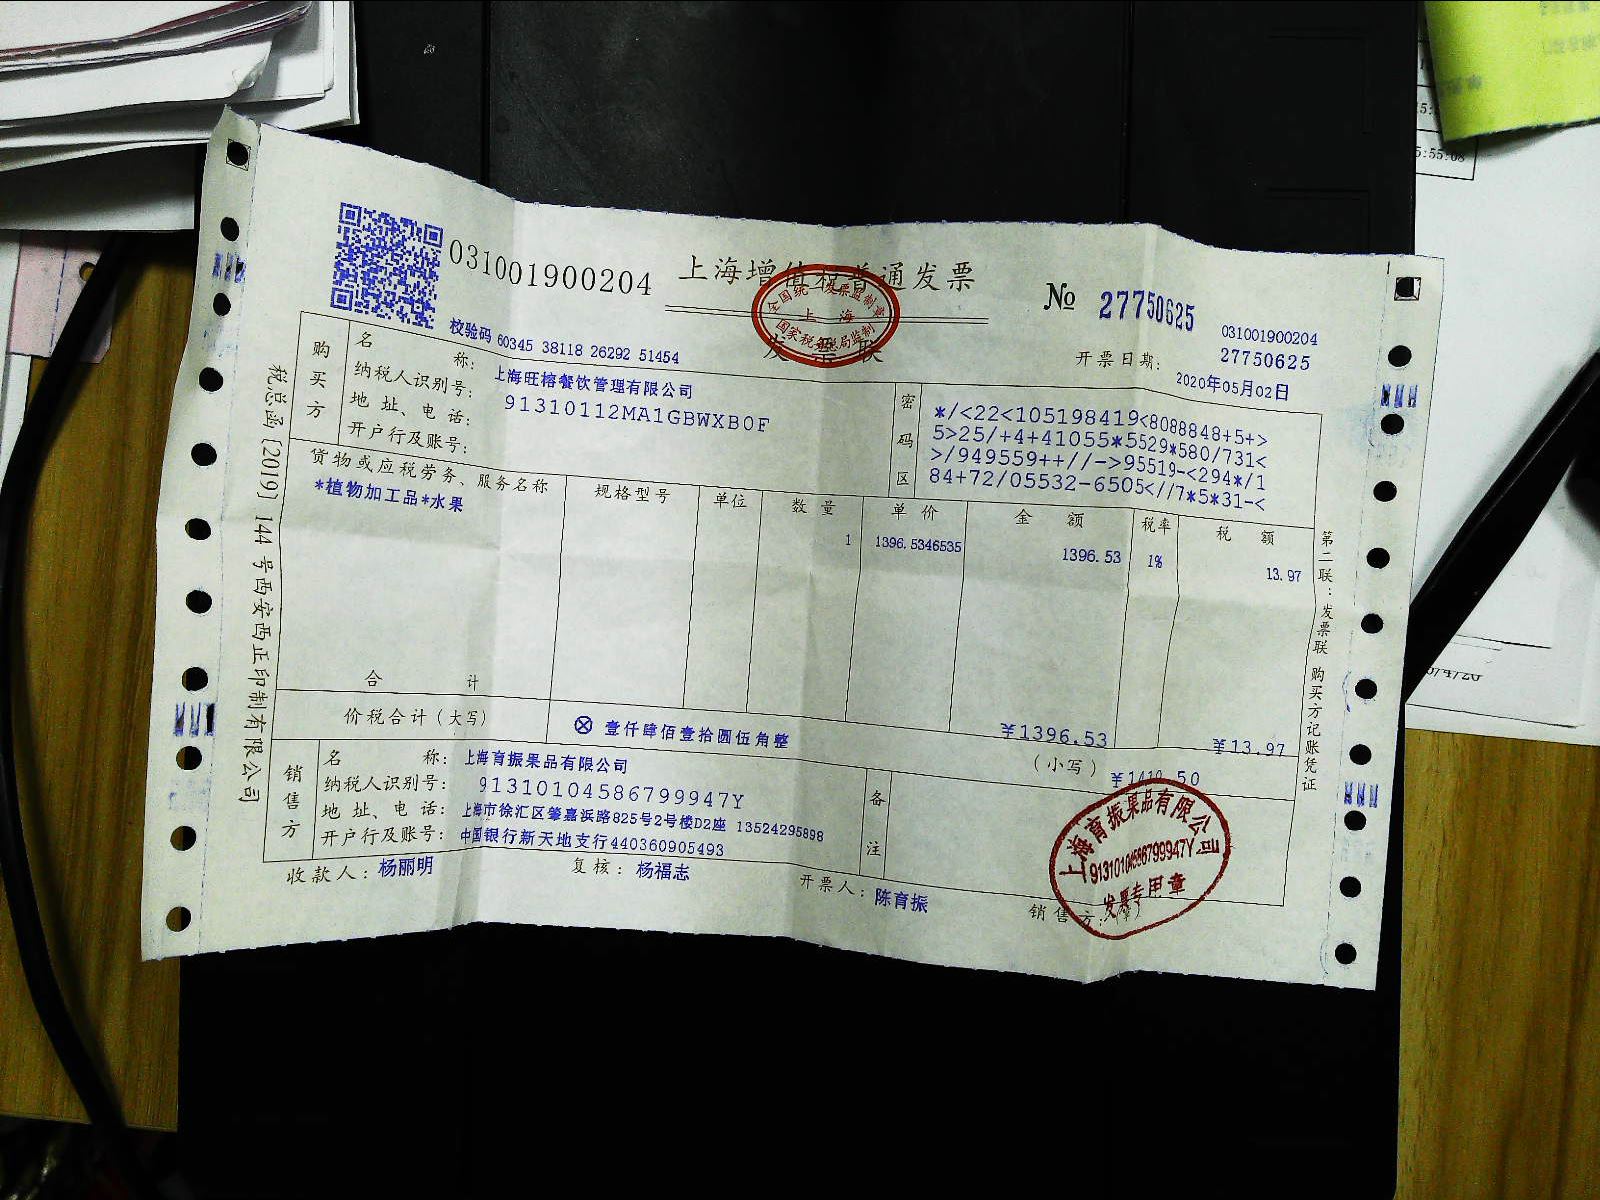 031001900204
上海增值税普通发票
全国统一发票监制章
上海
国家税务总局监制
发票联
№ 27750625
031001900204
27750625
校验码 60345 38118 26292 51454
开票日期: 2020年05月02日
购买方
名称: 上海旺榕餐饮管理有限公司
纳税人识别号: 91310112MA1GBWXB0F
地址、电话:
开户行及账号:
密码区
*/<22<105198419<8088848+5+>
5>25/+4+41055*5529*580/731<
>/949559++//->95519-<294*/1
84+72/05532-6505<//7*5*31-<
货物或应税劳务、服务名称 规格型号 单位 数量 单价 金额 税率 税额
*植物加工品*水果 1 1396.5346535 1396.53 1% 13.97
合计 ¥1396.53 ¥13.97
价税合计(大写) ⊗ 壹仟肆佰壹拾圆伍角整 (小写) ¥1410.50
销售方
名称: 上海育振果品有限公司
纳税人识别号: 91310104586799947Y
地址、电话: 上海市徐汇区肇嘉浜路825号2号楼D2座 13524295898
开户行及账号: 中国银行新天地支行440360905493
备注
收款人: 杨丽明 复核: 杨福志 开票人: 陈育振 销售方:(章)
上海育振果品有限公司
91310104586799947Y
发票专用章
税总函[2019]144号西安西正印制有限公司
第二联:发票联 购买方记账凭证
5:55:08